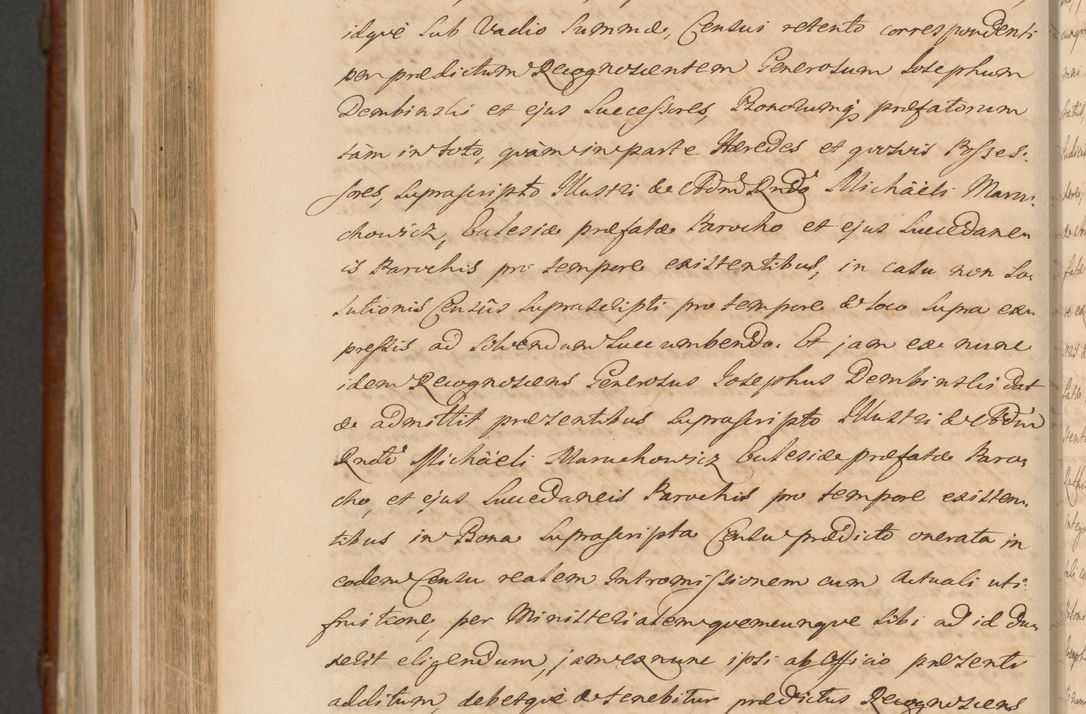 idqve sub Vadio Summæ, Censui retento correspondenti
per prædictum Recognoscentem Generosum Josephum
Dembinski et ejus Successores, Bonorumq præfatorum
tàm in toto, quàm in parte Hæredes et quosvis Posses-
sores, suprascripto Illustri & Admd Rndo Michäeli Maru-
chowicz, Ecclesiæ præfatæ Parocho et ejus Succedane-
is Parochis pro tempore existentibus, in casu non So-
lutionis Censûs suprascripti pro tempore & loco supra ex-
pressis ad solvendum succumbendo. Et jam ex nunc
idem Recognoscens Generosus Josephus Dembinski dat
& admittit præsentibus suprascripto Illustri & Admd
Rndo Michäeli Maruchowicz Ecclesiæ præfatæ Paro-
cho, et ejus Succedaneis Parochis pro tempore existen-
tibus in Bona suprascripta Censu prædicto onerata in
eodem Censu realem Intromissionem cum Actuali uti-
fruitione, per Ministerialem quemcunque sibi ad id du-
xerit eligendum, jam ex nunc ipsi ab Officio præsenti
additum, debetqve & tenebitur prædictus Recognoscens